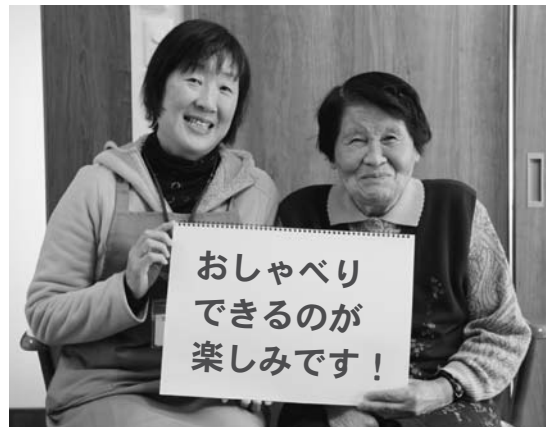 おしゃべり
できるのが
楽しみです！